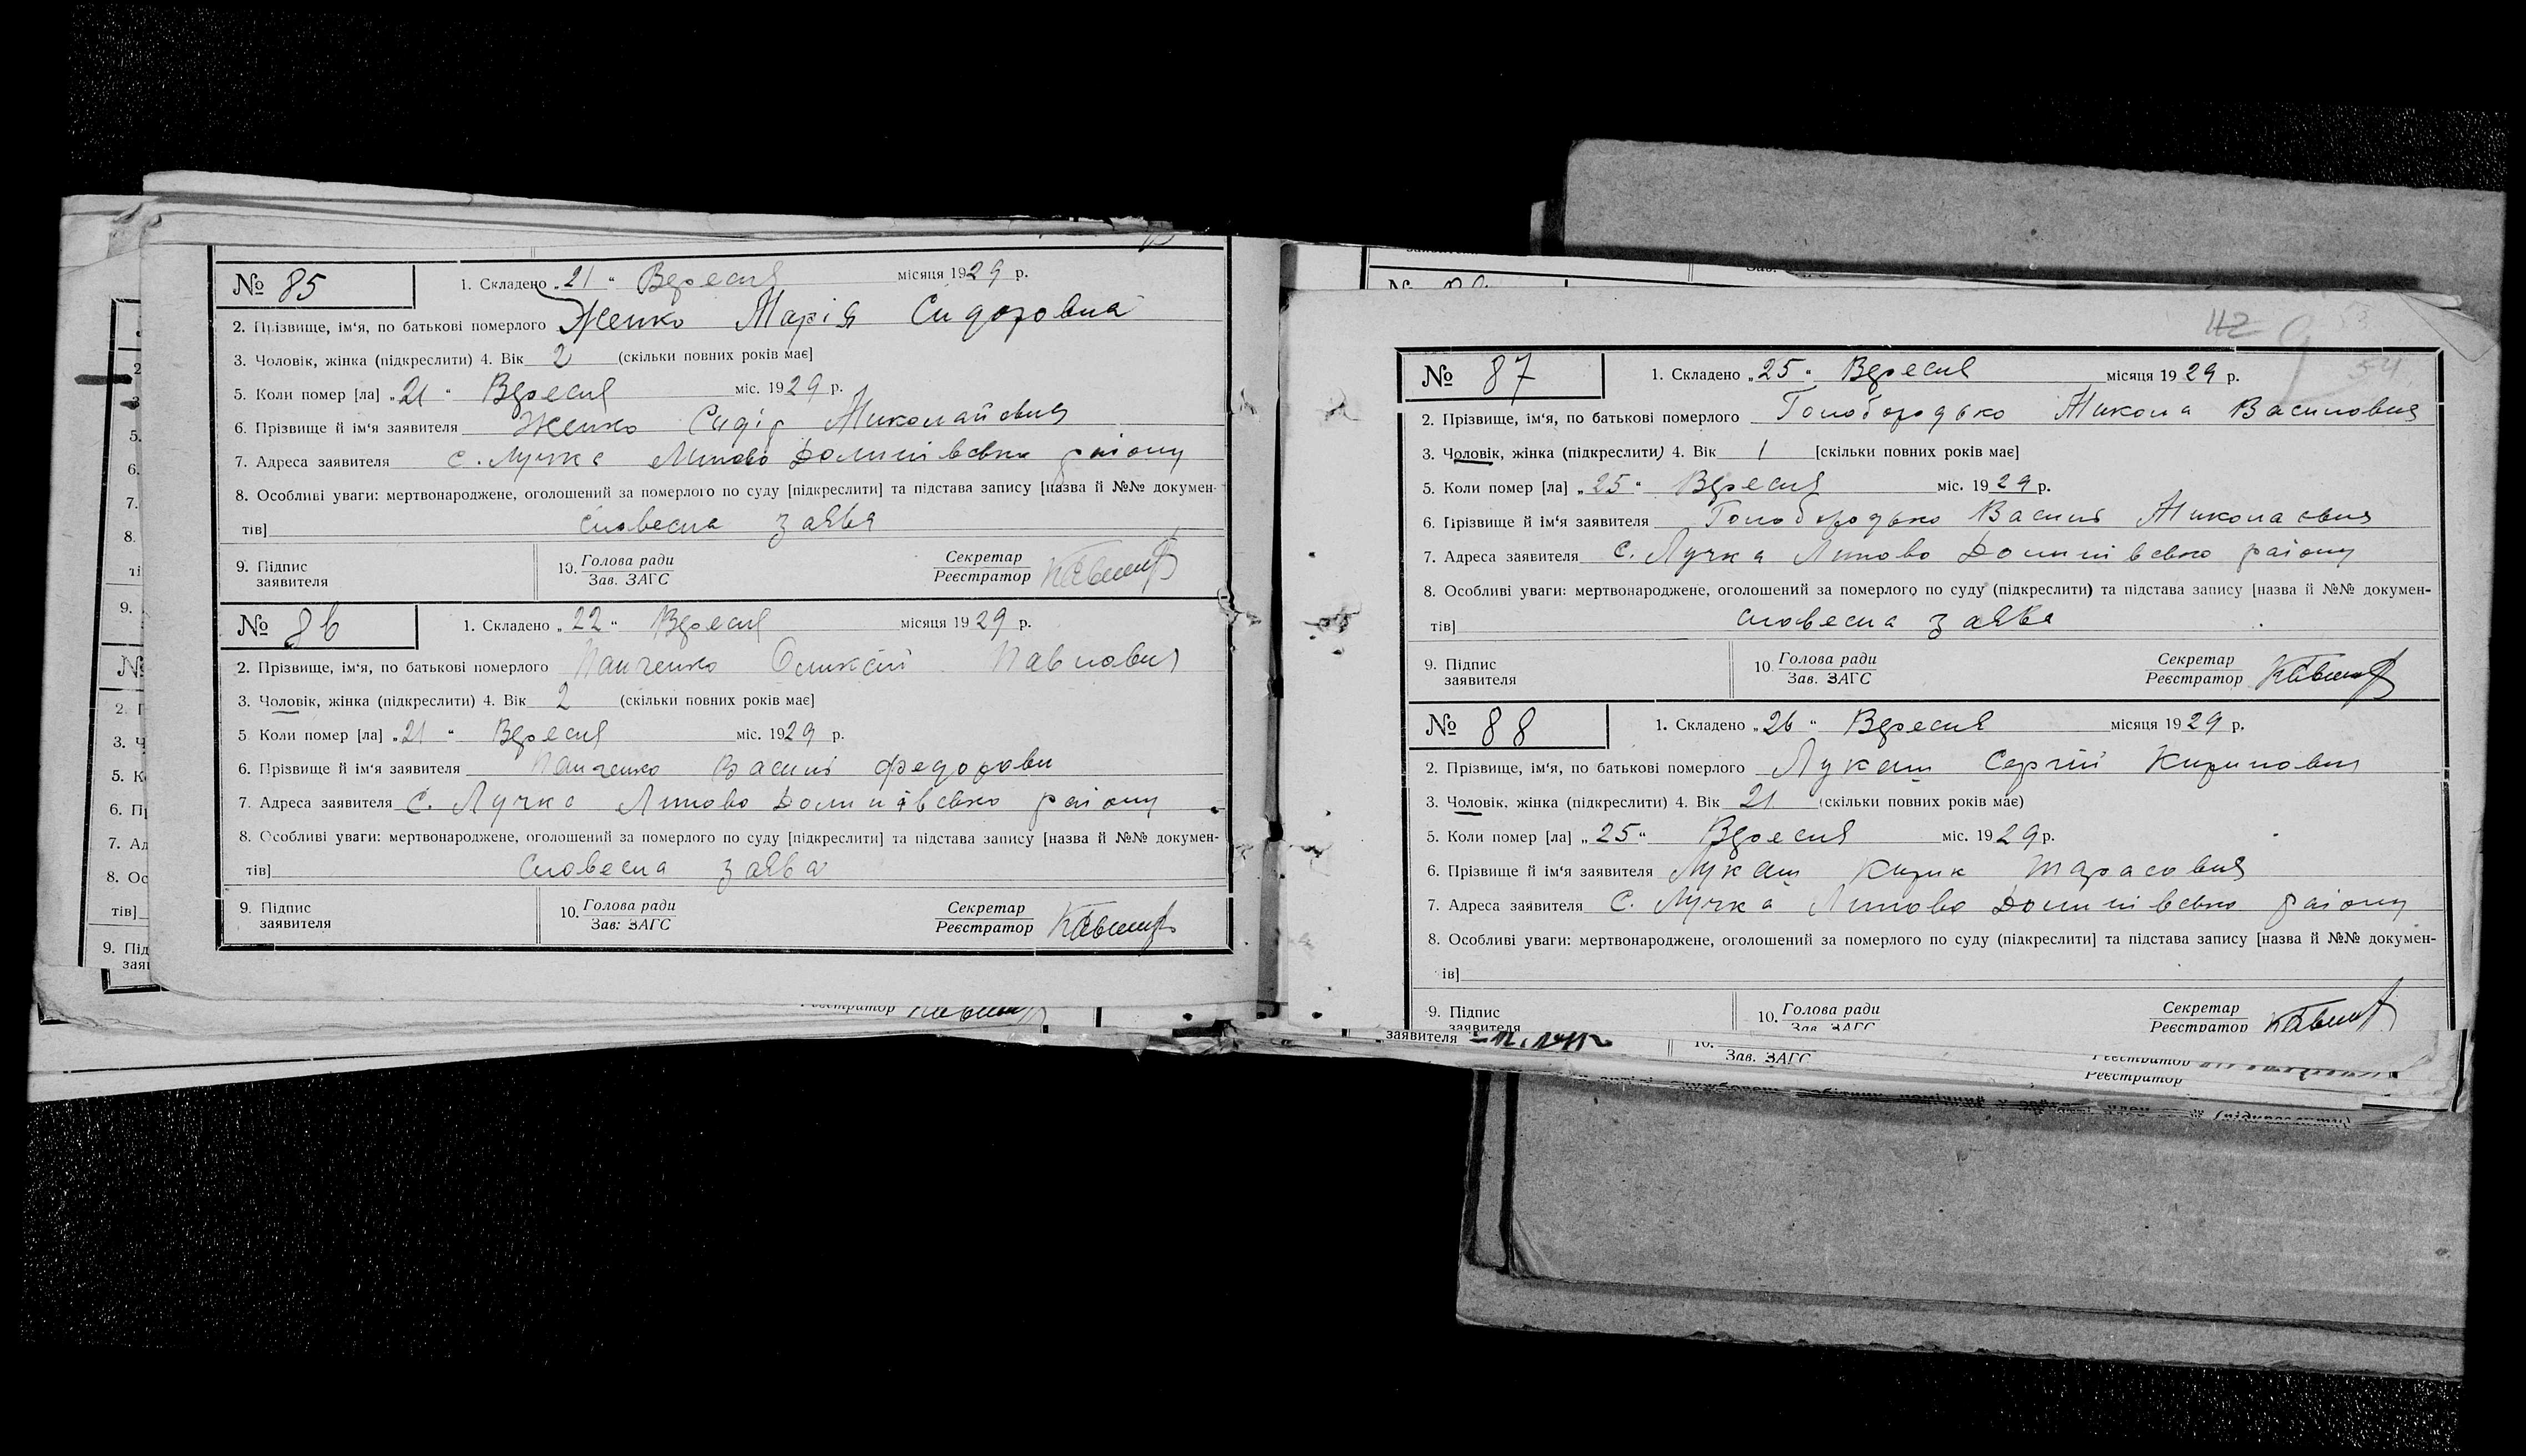 № 85
1. Складено „21“ Вересня місяця 1929 р.
2. Прізвище, ім‘я, по батькові померлого Женко Марія Сидоровна
3. Чоловік, жінка (підкреслити) 4. Вік 2 (скільки повних років має]
5. Коли помер [ла] „21“ Вересня міс. 1929 р.
6. Прізвище й ім‘я заявителя Женко Сидір Миколайович
7. Адреса заявителя с. Лучка Липово Долинівсько району
8. Особливі уваги: мертвонароджене, оголошений за померлого по суду [підкреслити] та підстава запису [назва й №№ докумен-
тів] словесна заява
9. Підпис заявителя 10. Голова ради Зав. ЗАГС Секретар Реєстратор
№ 86
1. Складено „22“ Вересня місяця 1929 р.
2. Прізвище, ім‘я, по батькові померлого Панченко Оликсій Павлович
3. Чоловік, жінка (підкреслити) 4. Вік 2 (скільки повних років має]
5 Коли помер [ла] „21“ Вересня міс. 1929 р.
6. Прізвище й ім‘я заявителя Панченко Василь Федорови
7. Адреса заявителя с. Лучка Липово Долинівсько району
8. Особливі уваги: мертвонароджене, оголошений за померлого по суду [підкреслити] та підстава запису [назва й №№ докумен-
тів] Словесна заява
9. Підпис заявителя 10. Голова ради Зав: ЗАГС Секретар Реєстратор
112
54
№ 87
1. Складено „25“ Вересня місяця 1929 р.
2. Прізвище, ім‘я, по батькові померлого Голобородько Микола Василович
3. Чоловік, жінка (підкреслити) 4. Вік 1 [скільки повних років має]
5. Коли помер [ла] „25“ Вересня міс. 1929 р.
6. Прізвище й ім‘я заявителя Голобородько Василь Миколаович
7. Адреса заявителя с. Лучка Липово Долинівсько району
8. Особливі уваги: мертвонароджене, оголошений за померлого по суду (підкреслити) та підстава запису [назва й №№ докумен-
тів] словесна заява
9. Підпис заявителя 10. Голова ради Зав. ЗАГС Секретар Реєстратор
№ 88
1. Складено „26“ Вересня місяця 1929 р.
2. Прізвище, ім‘я, по батькові померлого Лукаш Сергій Кирилович
3. Чоловік, жінка (підкреслити) 4. Вік 21 (скільки повних років має)
5. Коли помер [ла] „25“ Вересня міс. 1929 р.
6. Прізвище й ім‘я заявителя Лукаш Кирик Тарасович
7. Адреса заявителя С. Лучка Липово Долинівсько району
8. Особливі уваги: мертвонароджене, оголошений за померлого по суду (підкреслити] та підстава запису [назва й №№ докумен-
ів]
9. Підпис заявителя 10. Голова ради Зав. ЗАГС Секретар Реєстратор
заявителя
Зав. ЗАГС
Реєстратор